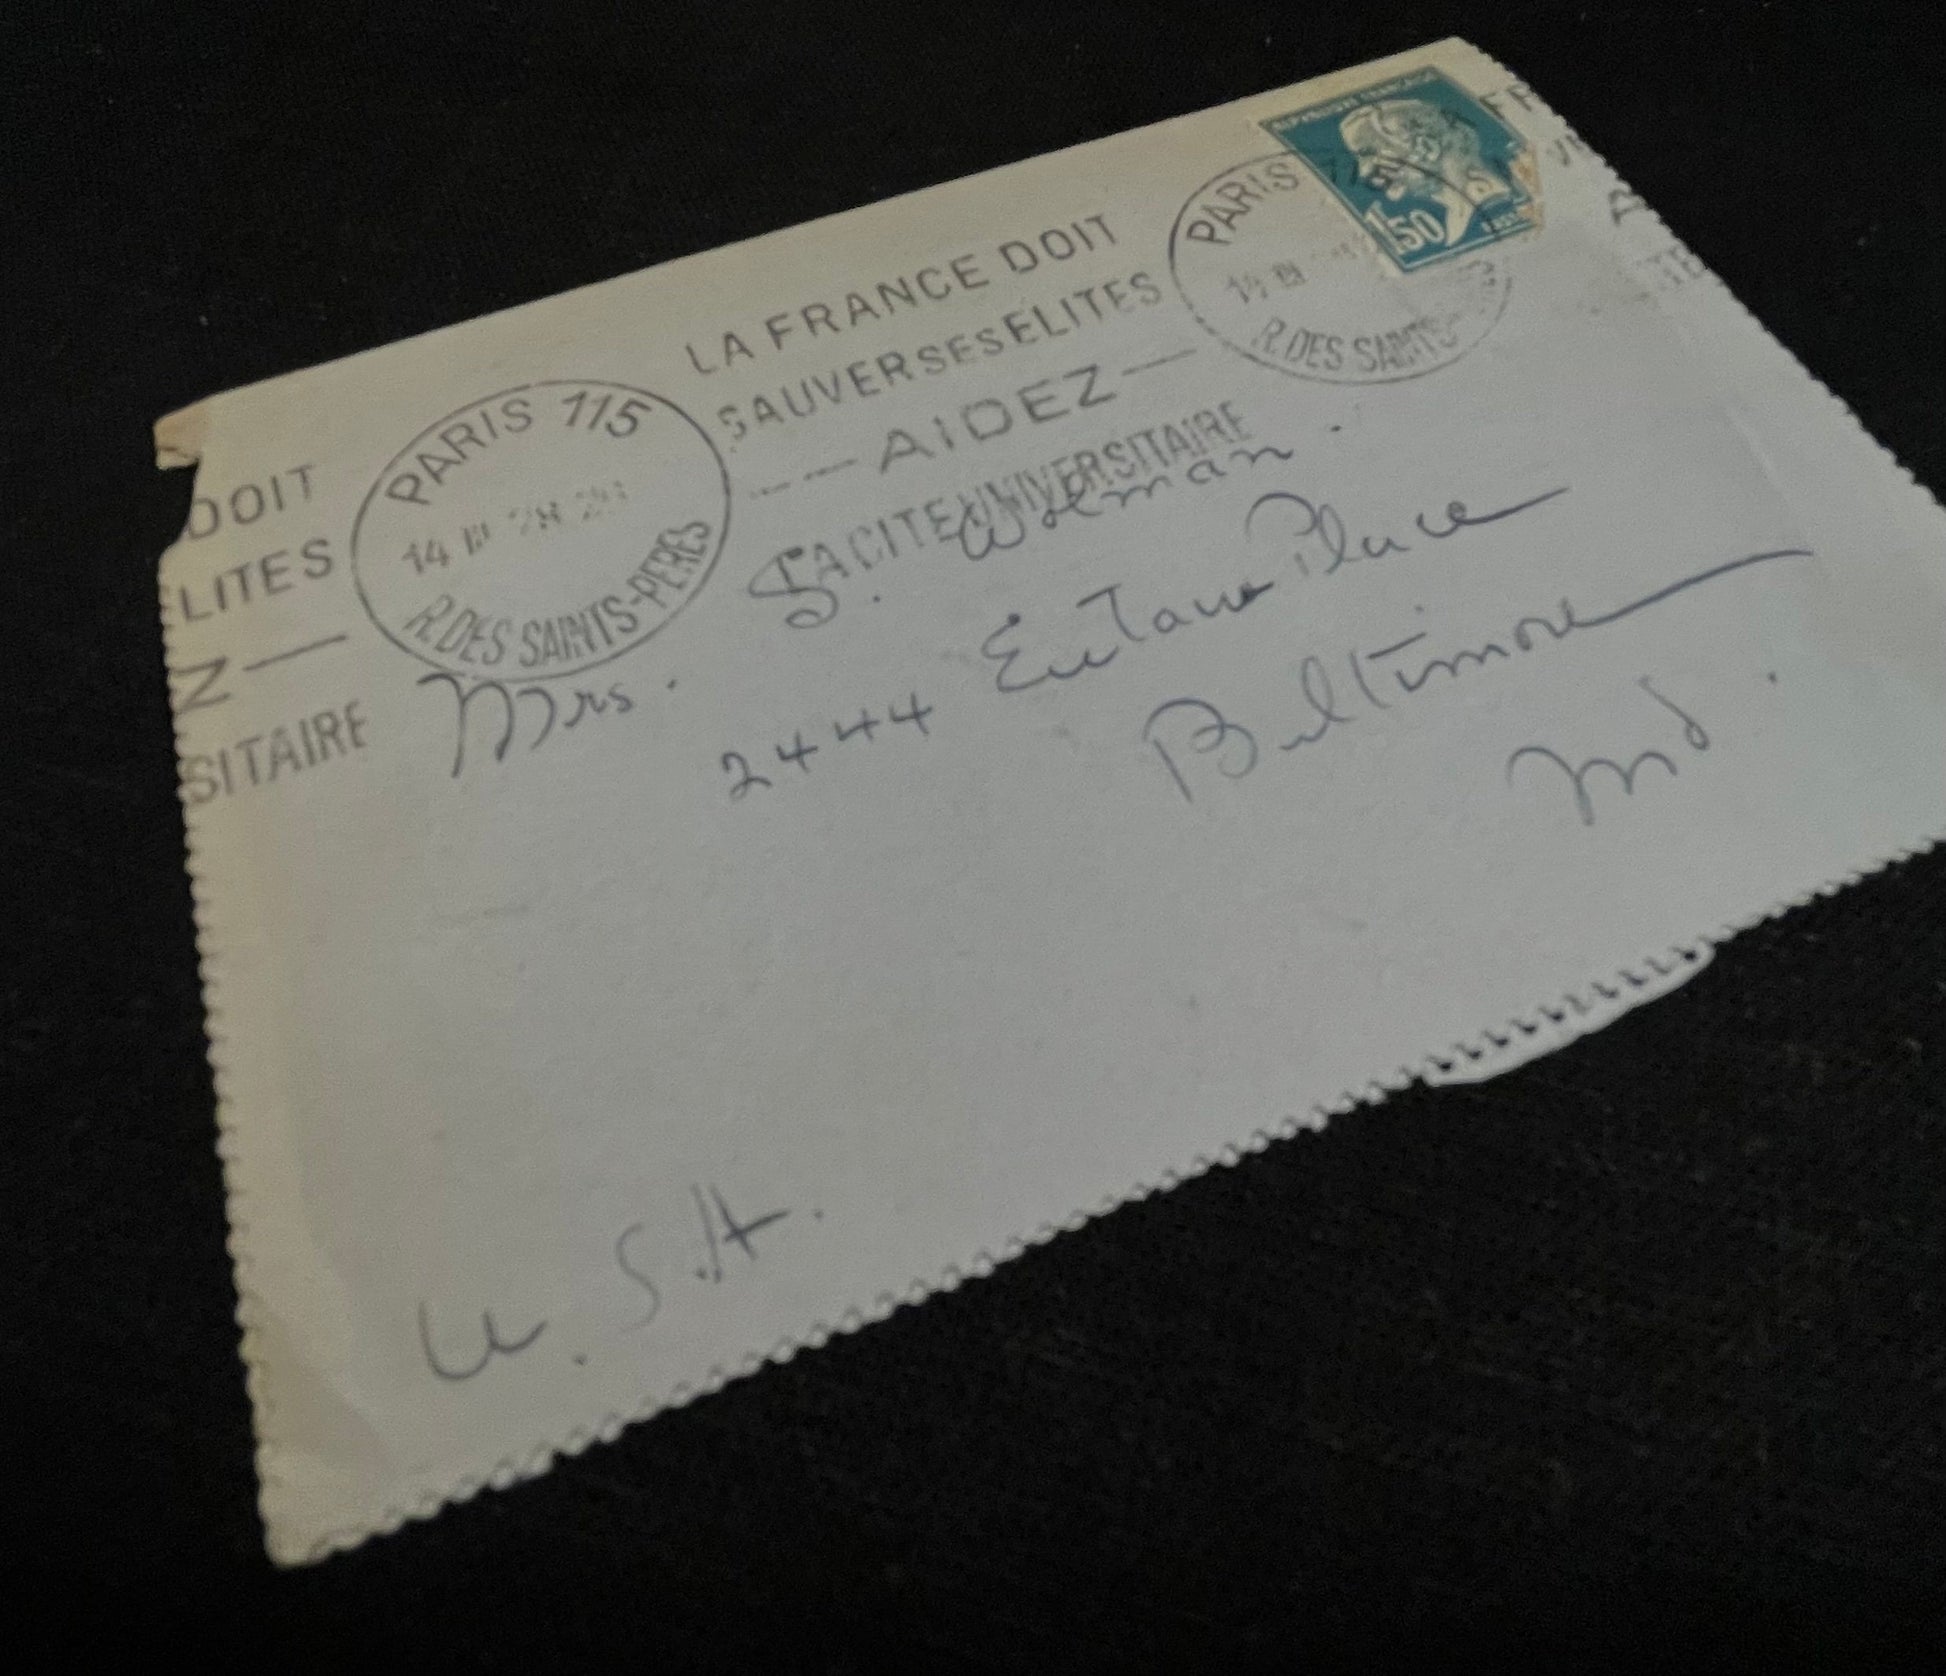 REPUBLIQUE FRANCAISE
1F50
LA FRANCE DOIT
SAUVER SES ELITES
AIDEZ
LA CITE UNIVERSITAIRE
PARIS 115
14 III
R. DES SAINTS-
DOIT
ELITES
Z
SITAIRE
PARIS 115
14 III 28
R. DES SAINTS-PERES
FR
Mrs. S. Wolman.
2444 Eutaw Place
Baltimore
Md.
U.S.A.